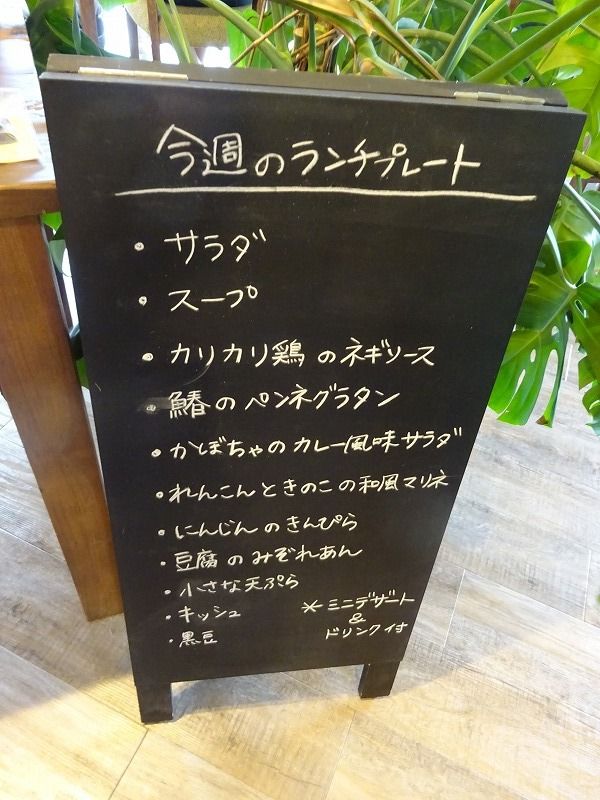 今週のランチプレート
・サラダ
・スープ
・カリカリ鶏のネギソース
・鰆のペンネグラタン
・かぼちゃのカレー風味サラダ
・れんこんときのこの和風マリネ
・にんじんのきんぴら
・豆腐のみぞれあん
・小さな天ぷら
・キッシュ
・黒豆
＊ミニデザート
&
ドリンク付